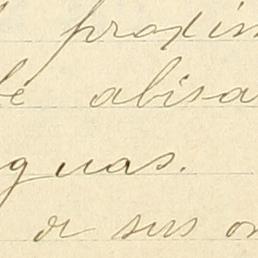 proxim
abisa
guas.
a sus or